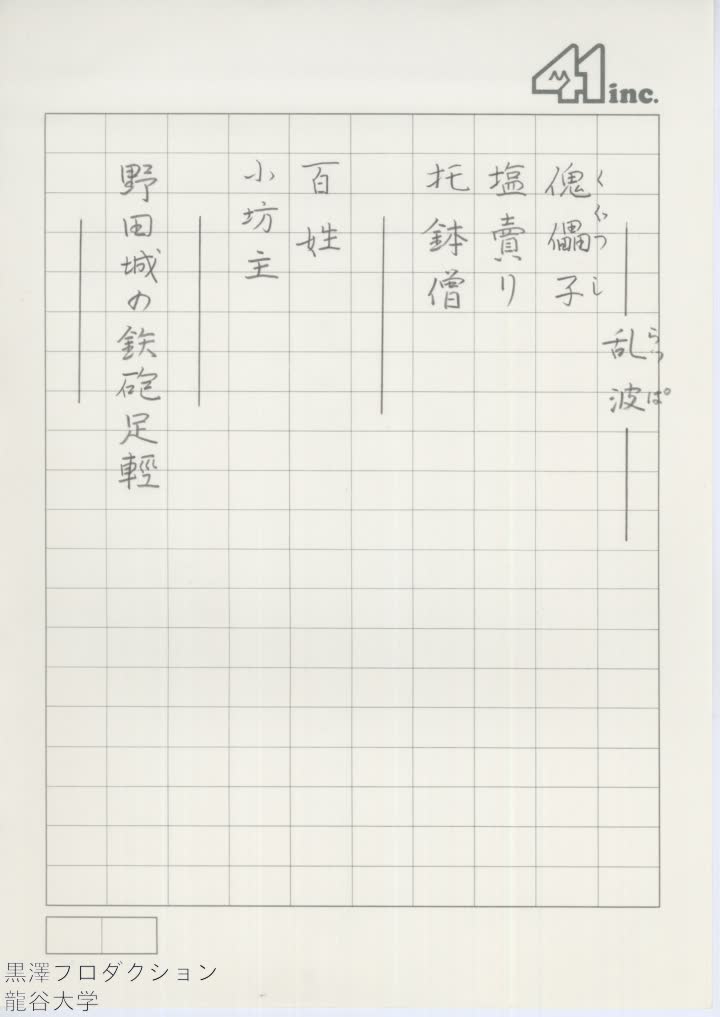 41 inc.
乱波
らっぱ
傀儡子
くぐつし
塩賣り
托鉢僧
百姓
小坊主
野田城の鉄砲足輕
黒澤プロダクション
龍谷大学